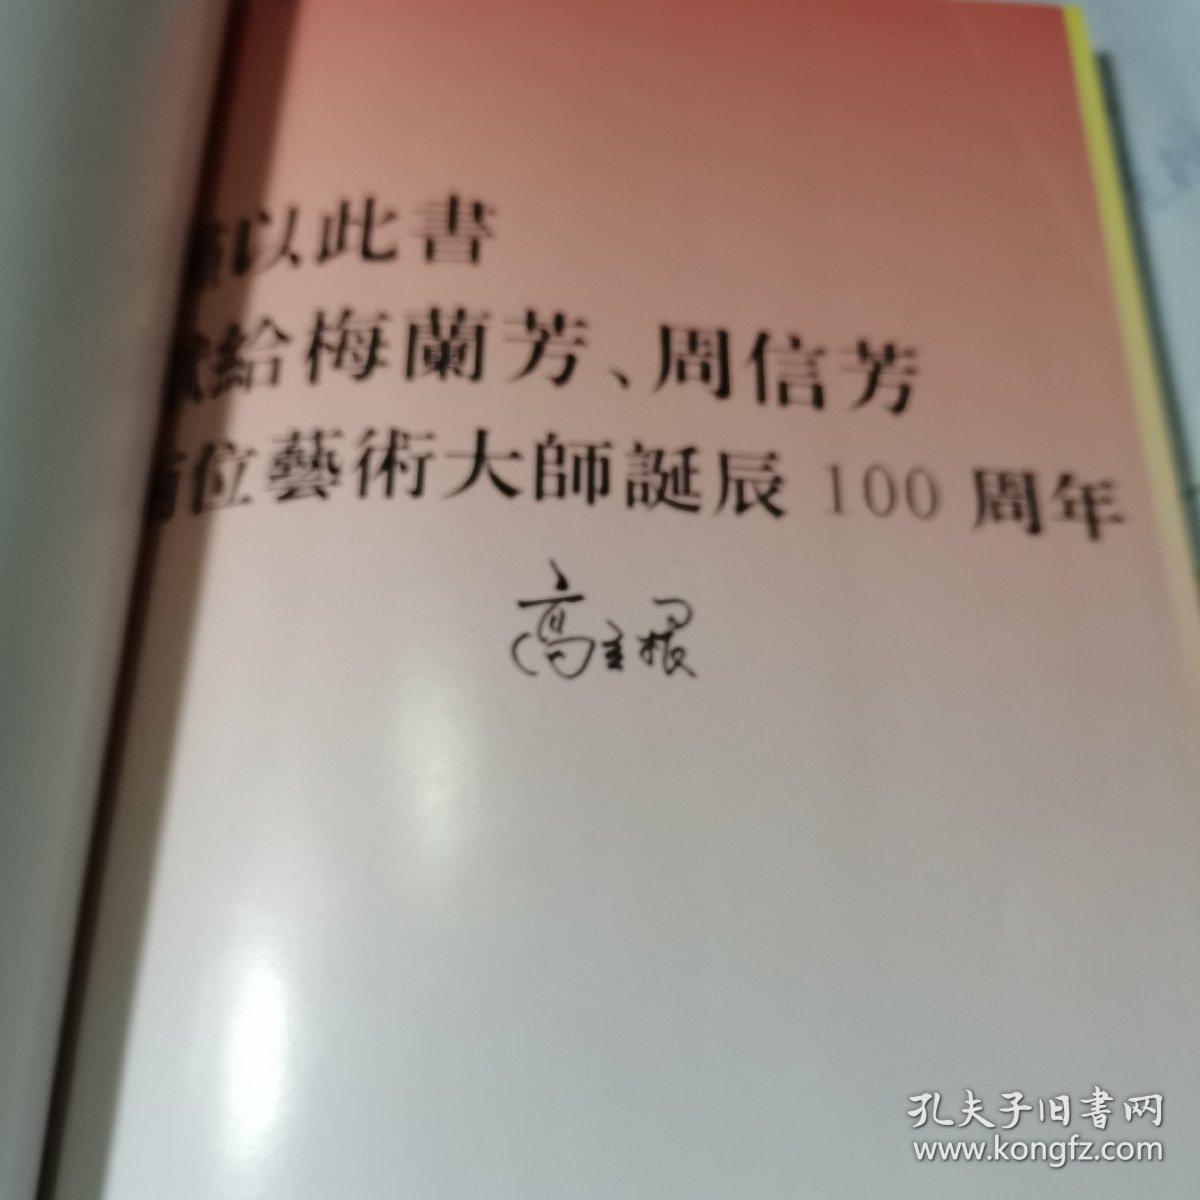 僅以此書
獻給梅蘭芳、周信芳
兩位藝術大師誕辰 100 周年
高主根
孔夫子旧书网
www.kongfz.com